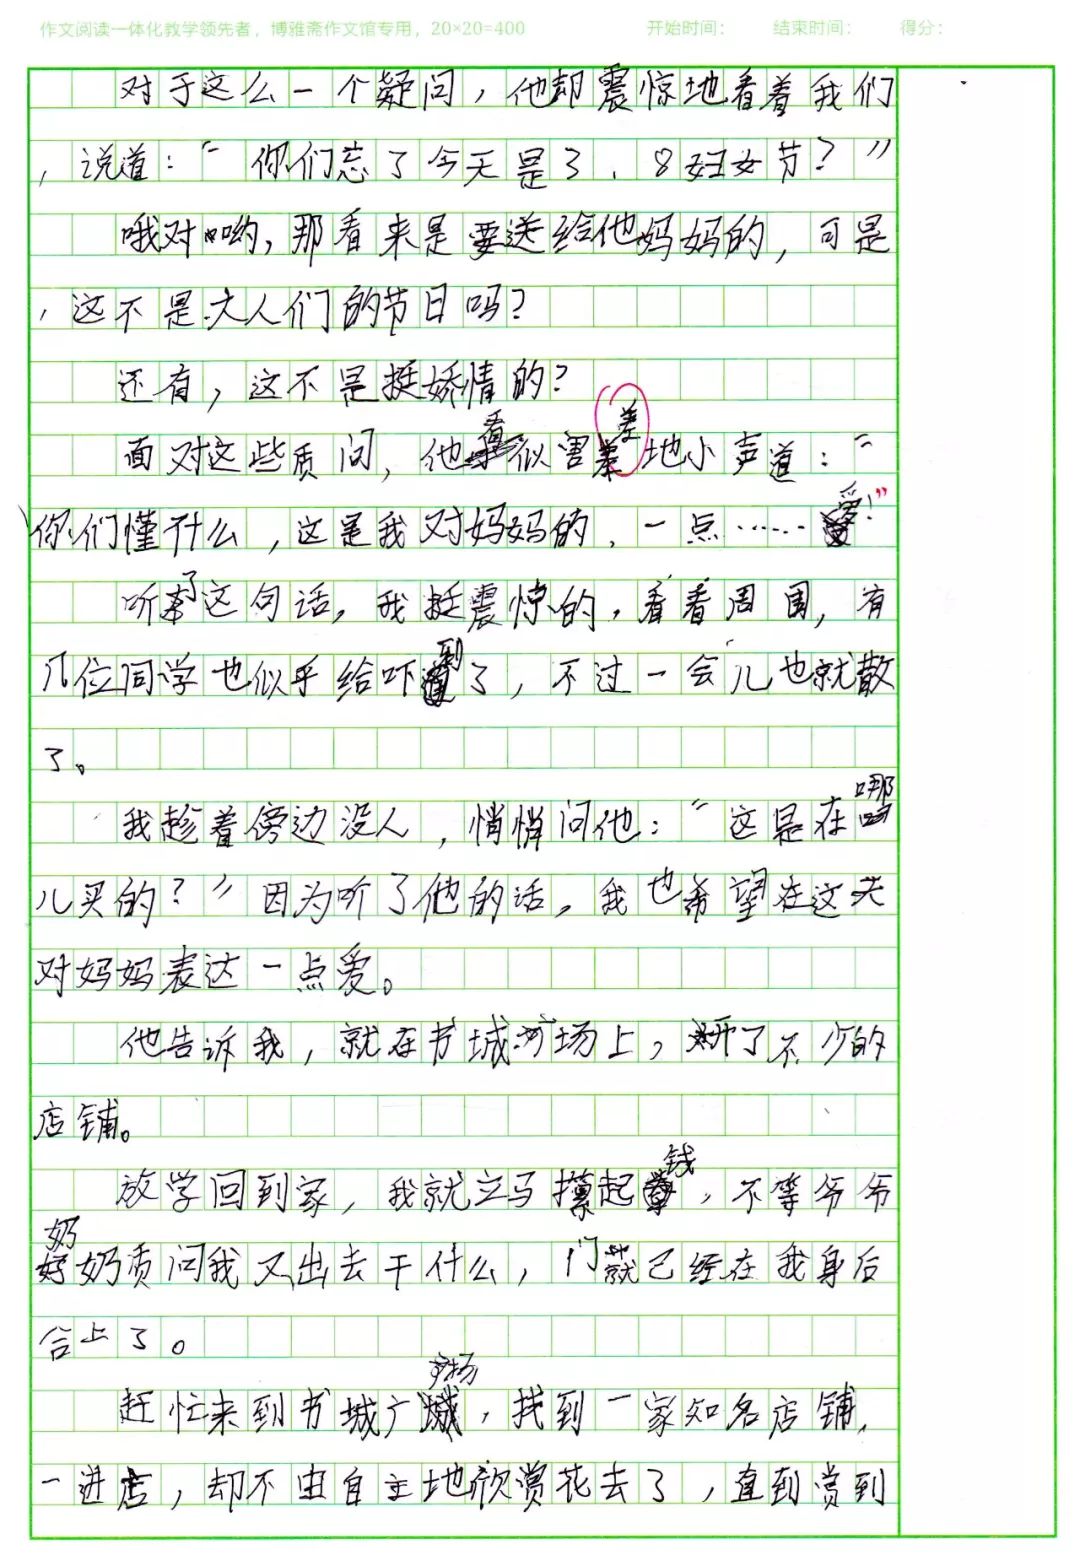 作文阅读一体化教学领先者，博雅斋作文馆专用，20×20=400 开始时间： 结束时间： 得分：
对于这么一个疑问，他却震惊地看着我们
，说道：“你们忘了今天是3.8妇女节？”
哦对哟，那看来是要送给他妈妈的，可是
，这不是大人们的节日吗？
还有，这不是挺娇情的？
面对这些质问，他看似害羞地小声道：“
你们懂什么，这是我对妈妈的，一点……爱！”
听了这句话，我挺震惊的，看看周围，有
几位同学也似乎给吓到了，不过一会儿也就散
了。
我趁着傍边没人，悄悄问他：“这是在哪
儿买的？”因为听了他的话，我也希望在这天
对妈妈表达一点爱。
他告诉我，就在书城广场上，开了不少的
店铺。
放学回到家，我就立马摸起钱，不等爷爷
奶奶质问我又出去干什么，门就已经在我身后
合上了。
赶忙来到书城广场，找到一家知名店铺，
一进店，却不由自主地欣赏花去了，直到赏到